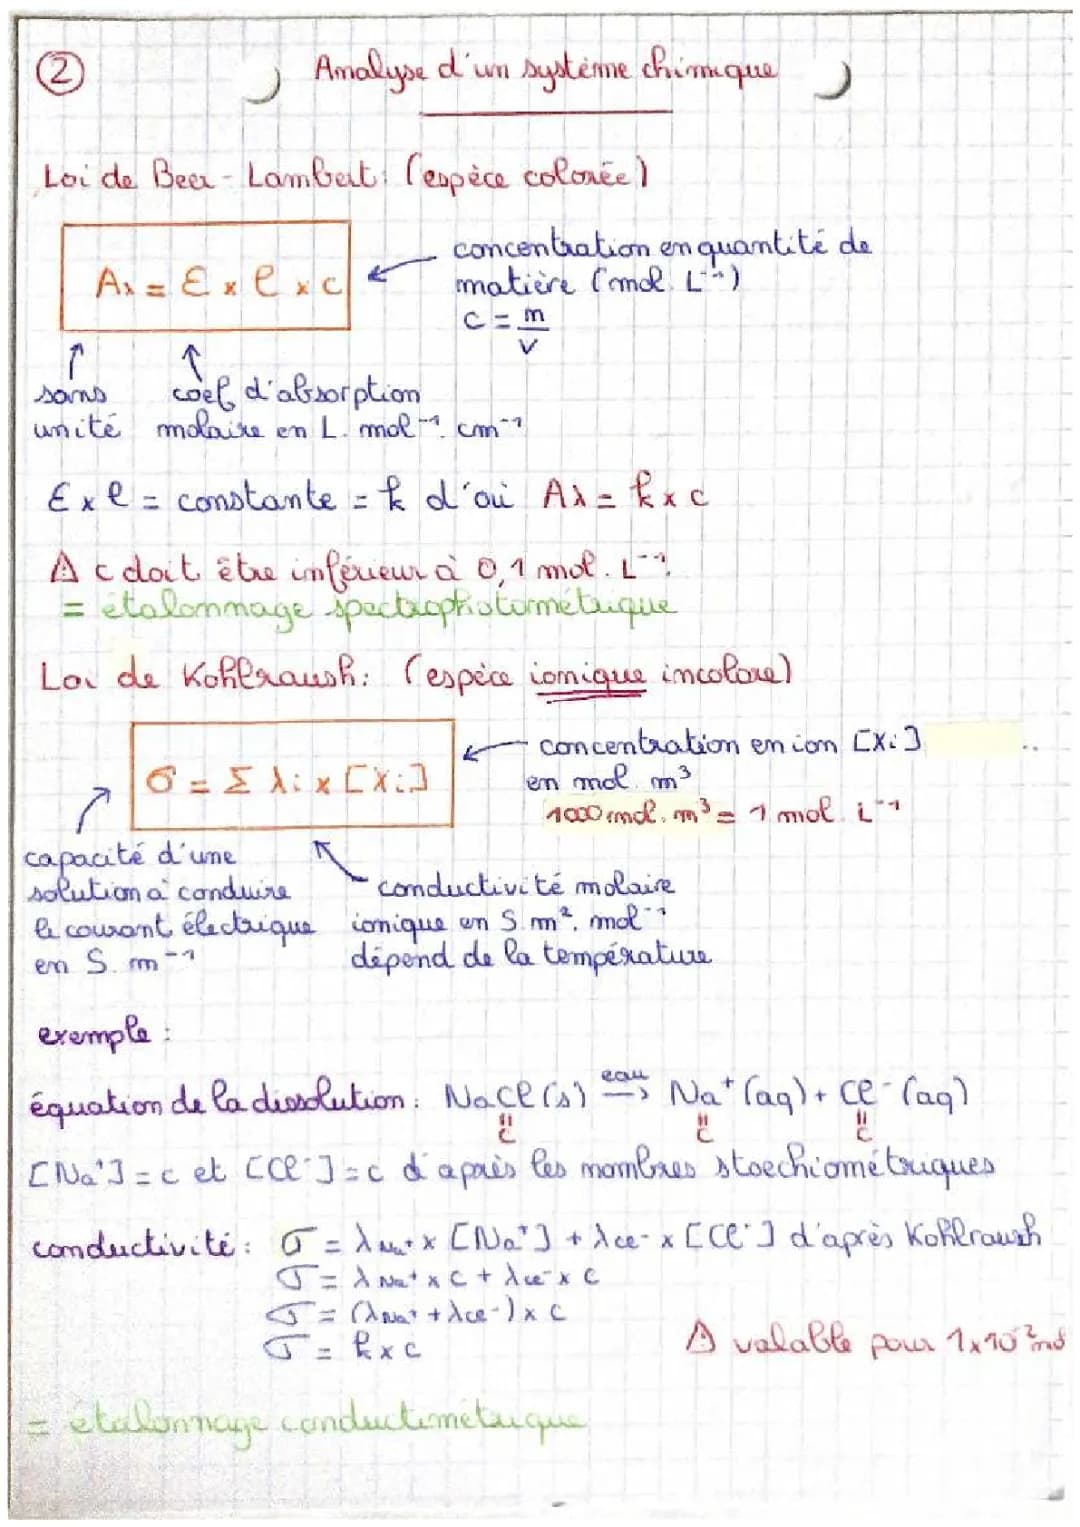 ②
Analyse d'un système chimique
Loi de Beer-Lambert: (espèce colorée)
Aλ = Ɛ x l x c
concentration en quantité de
matière (mol. L⁻¹)
c = n
V
sans
unité
coef d'absorption
molaire en L. mol⁻¹. cm⁻¹
Ɛ x l = constante = k d'où Aλ = k x c
⚠ c doit être inférieur à 0,1 mol. L⁻¹.
= étalonnage spectrophotométrique
Loi de Kohlraush: (espèce ionique incolore)
σ = Σ λi x [Xi]
concentration en ion [Xi]
en mol. m³
1000 mol. m³ = 1 mol. L⁻¹
capacité d'une
solution à conduire
le courant électrique
en S. m⁻¹
conductivité molaire
ionique en S. m². mol⁻¹
dépend de la température
exemple :
équation de la dissolution : NaCl (s) eau→ Na⁺ (aq) + Cl⁻ (aq)
= c = c = c
[Na⁺] = c et [Cl⁻] = c d'après les nombres stoechiométriques
conductivité : σ = λNa⁺ x [Na⁺] + λCl⁻ x [Cl⁻] d'après Kohlraush
σ = λNa⁺ x c + λCl⁻ x c
σ = (λNa⁺ + λCl⁻) x c
σ = k x c
⚠ valable pour 1x10⁻²
= étalonnage conductimétrique